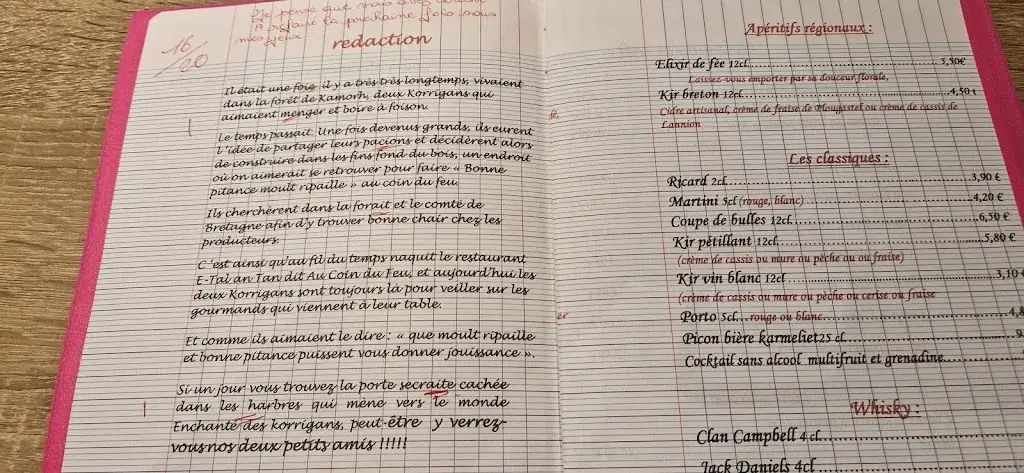 Je pense que vous avez
A refaire la prochaine fois sous
mes yeux
16/20
redaction
Il était une foie il y a très très longtemps, vivaient
dans la forêt de Kamorh, deux Korrigans qui
aimaient menger et boire à foison.
Le temps passait. Une fois devenus grands, ils eurent
l'idée de partager leurs pacions et décidèrent alors
de construire dans les fins fond du bois, un endroit
où on aimerait se retrouver pour faire « Bonne
pitance moult ripaille » au coin du feu.
Ils cherchèrent dans la forait et le comté de
Bretagne afin d'y trouver bonne chair chez les
producteurs.
C'est ainsi qu'au fil du temps naquit le restaurant
E-Tal an Tan dit Au Coin du Feu, et aujourd'hui les
deux Korrigans sont toujours là pour veiller sur les
gourmands qui viennent à leur table.
Et comme ils aimaient le dire : « que moult ripaille
et bonne pitance puissent vous donner jouissance ».
Si un jour vous trouvez la porte secraite cachée
dans les harbres qui mène vers le monde
Enchanté des korrigans, peut-être y verrez-
vous nos deux petits amis !!!!!
Apéritifs régionaux :
Elixir de fée 12cl 5,50€
Laissez-vous emporter par sa douceur florale,
Kir breton 12cl 4,50 €
Cidre artisanal, crème de fraise de Plougastel ou crème de cassis de
Lannion
Les classiques :
Ricard 2cl 3,90 €
Martini 5cl (rouge, blanc) 4,20 €
Coupe de bulles 12cl 6,50 €
Kir pétillant 12cl 5,80 €
(crème de cassis ou mure ou pèche ou ou fraise)
Kir vin blanc 12cl 3,10 €
(crème de cassis ou mure ou pèche ou cerise ou fraise
Porto 5cl... rouge ou blanc 4,8
Picon bière karmeliet 25 cl 9
Cocktail sans alcool multifruit et grenadine
Whisky :
Clan Campbell 4 cl
Jack Daniels 4cl